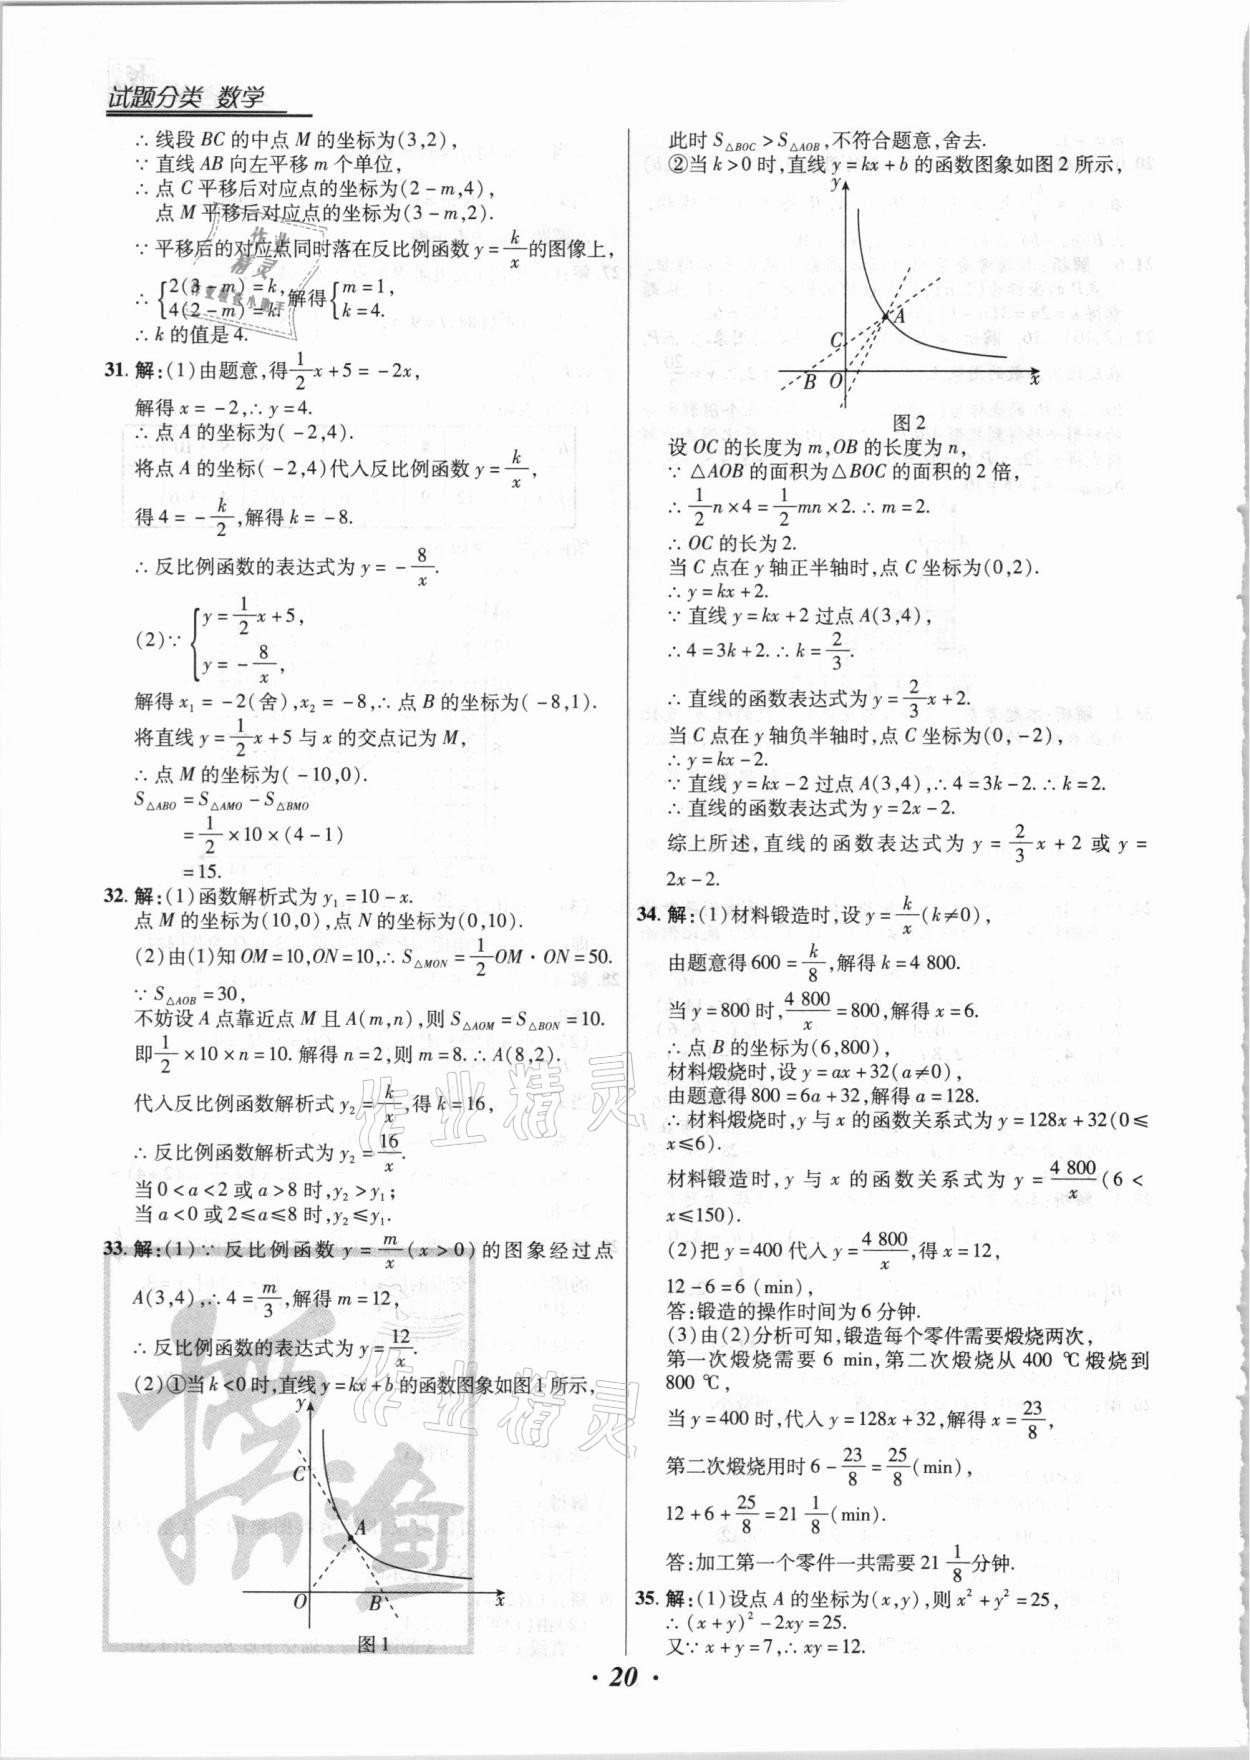 试题分类 数学
∴线段BC的中点M的坐标为(3,2),
∵直线AB向左平移m个单位,
∴点C平移后对应点的坐标为(2-m,4),
点M平移后对应点的坐标为(3-m,2).
∵平移后的对应点同时落在反比例函数y=k/x的图像上,
∴{2(3-m)=k, 4(2-m)=k. 解得{m=1, k=4.
∴k的值是4.
31. 解:(1)由题意,得1/2x+5=-2x,
解得x=-2,∴y=4.
∴点A的坐标为(-2,4).
将点A的坐标(-2,4)代入反比例函数y=k/x,
得4=-k/2,解得k=-8.
∴反比例函数的表达式为y=-8/x.
(2)∵{y=1/2x+5, y=-8/x,
解得x₁=-2(舍),x₂=-8,∴点B的坐标为(-8,1).
将直线y=1/2x+5与x的交点记为M,
∴点M的坐标为(-10,0).
S△ABO=S△AMO-S△BMO
=1/2×10×(4-1)
=15.
32. 解:(1)函数解析式为y₁=10-x.
点M的坐标为(10,0),点N的坐标为(0,10).
(2)由(1)知OM=10,ON=10,∴S△MON=1/2OM·ON=50.
∵S△AOB=30,
不妨设A点靠近点M且A(m,n),则S△AOM=S△BON=10.
即1/2×10×n=10.解得n=2,则m=8.∴A(8,2).
代入反比例函数解析式y₂=k/x,得k=16,
∴反比例函数解析式为y₂=16/x.
当0<a<2或a>8时,y₂>y₁;
当a<0或2≤a≤8时,y₂≤y₁.
33. 解:(1)∵反比例函数y=m/x(x>0)的图象经过点
A(3,4),∴4=m/3,解得m=12,
∴反比例函数的表达式为y=12/x.
(2)①当k<0时,直线y=kx+b的函数图象如图1所示,
y
C
A
O
B
x
图1
此时S△BOC>S△AOB,不符合题意,舍去.
②当k>0时,直线y=kx+b的函数图象如图2所示,
y
A
C
B
O
x
图2
设OC的长度为m,OB的长度为n,
∵△AOB的面积为△BOC的面积的2倍,
∴1/2n×4=1/2mn×2.∴m=2.
∴OC的长为2.
当C点在y轴正半轴时,点C坐标为(0,2).
∴y=kx+2.
∵直线y=kx+2过点A(3,4),
∴4=3k+2.∴k=2/3.
∴直线的函数表达式为y=2/3x+2.
当C点在y轴负半轴时,点C坐标为(0,-2),
∴y=kx-2.
∵直线y=kx-2过点A(3,4),∴4=3k-2.∴k=2.
∴直线的函数表达式为y=2x-2.
综上所述,直线的函数表达式为y=2/3x+2或y=
2x-2.
34. 解:(1)材料锻造时,设y=k/x(k≠0),
由题意得600=k/8,解得k=4 800.
当y=800时,4 800/x=800,解得x=6.
∴点B的坐标为(6,800),
材料煅烧时,设y=ax+32(a≠0),
由题意得800=6a+32,解得a=128.
∴材料煅烧时,y与x的函数关系式为y=128x+32(0≤
x≤6).
材料锻造时,y与x的函数关系式为y=4 800/x(6<
x≤150).
(2)把y=400代入y=4 800/x,得x=12,
12-6=6(min),
答:锻造的操作时间为6分钟.
(3)由(2)分析可知,锻造每个零件需要煅烧两次,
第一次煅烧需要6 min,第二次煅烧从400 ℃煅烧到
800 ℃,
当y=400时,代入y=128x+32,解得x=23/8,
第二次煅烧用时6-23/8=25/8(min),
12+6+25/8=21 1/8(min),
答:加工第一个零件一共需要21 1/8分钟.
35. 解:(1)设点A的坐标为(x,y),则x²+y²=25,
∴(x+y)²-2xy=25.
又∵x+y=7,∴xy=12.
· 20 ·
作业精灵
作业精灵
作业精灵